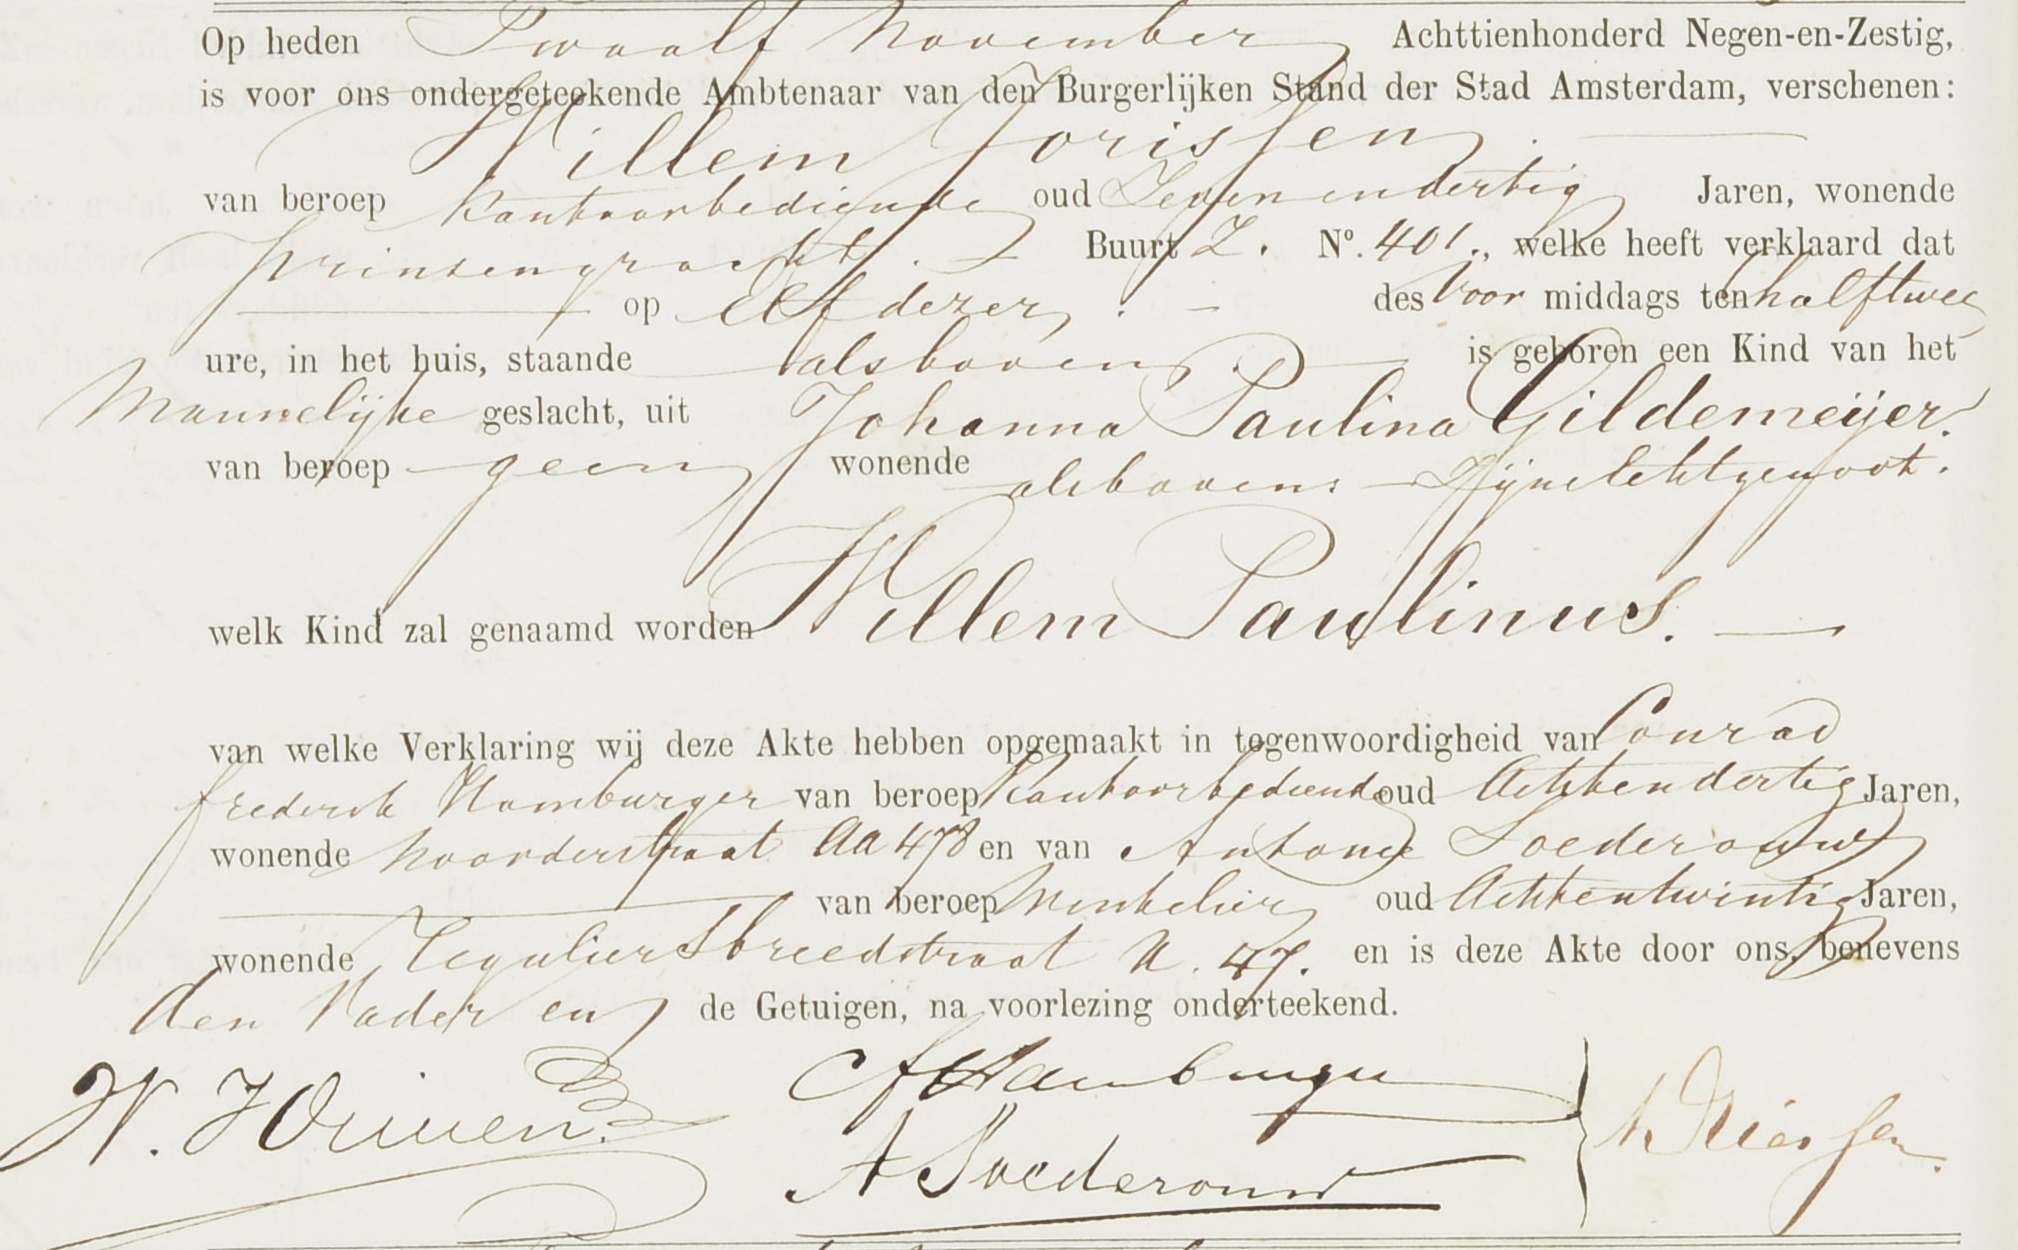 Op heden Twaalf November Achttienhonderd Negen-en-Zestig,
is voor ons ondergeteekende Ambtenaar van den Burgerlijken Stand der Stad Amsterdam, verschenen:
Willem Jorissen
van beroep Kantoorbediende oud Zevenendertig Jaren, wonende
Prinsengracht. Buurt Z. Nº. 401., welke heeft verklaard dat
op Elf dezer, des Voor middags ten halftwee
ure, in het huis, staande alsboven is geboren een Kind van het
Mannelijke geslacht, uit Johanna Paulina Gildemeijer.
van beroep geen wonende alsboven. Zijne Echtgenoot.
welk Kind zal genaamd worden Willem Paulinus.
van welke Verklaring wij deze Akte hebben opgemaakt in tegenwoordigheid van Conrad
frederik Hamburger van beroep Kantoorbediende oud Achtendertig Jaren,
wonende Noorderstraat AA 478 en van Antonie Soederouw
van beroep Winkelier oud Achtentwintig Jaren,
wonende Reguliersbreedstraat N. 47. en is deze Akte door ons, benevens
den Vader en de Getuigen, na voorlezing onderteekend.
W. Jorissen.
CF Hamburger
A Soederouw